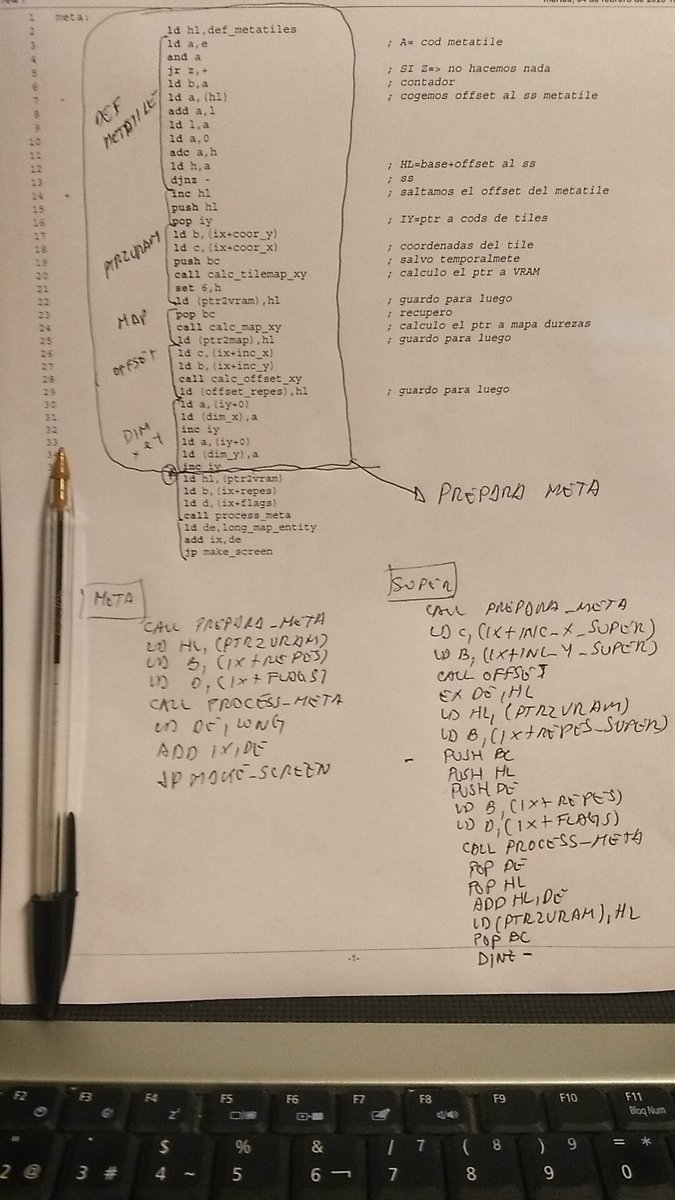 martes, 04 de febrero de 2020
1 meta:
2 ld hl,def_metatiles
3 ld a,e ; A= cod metatile
4 and a
5 jr z,+ ; SI Z=> no hacemos nada
6 ld b,a ; contador
7 - ld a,(hl) ; cogemos offset al ss metatile
8 add a,l
9 ld l,a
10 ld a,0
11 adc a,h
12 ld h,a ; HL=base+offset al ss
13 djnz - ; ss
14 + inc hl ; saltamos el offset del metatile
15 push hl
16 pop iy ; IY=ptr a cods de tiles
17 ld b,(ix+coor_y)
18 ld c,(ix+coor_x) ; coordenadas del tile
19 push bc ; salvo temporalmete
20 call calc_tilemap_xy ; calculo el ptr a VRAM
21 set 6,h
22 ld (ptr2vram),hl ; guardo para luego
23 pop bc ; recupero
24 call calc_map_xy ; calculo el ptr a mapa durezas
25 ld (ptr2map),hl ; guardo para luego
26 ld c,(ix+inc_x)
27 ld b,(ix+inc_y)
28 call calc_offset_xy
29 ld (offset_repes),hl ; guardo para luego
30 ld a,(iy+0)
31 ld (dim_x),a
32 inc iy
33 ld a,(iy+0)
ld (dim_y),a
inc iy
ld hl,(ptr2vram)
ld b,(ix+repes)
ld d,(ix+flags)
call process_meta
ld de,long_map_entity
add ix,de
jp make_screen
DEF
METATILE
PTR2VRAM
MAP
OFFSET
DIM
X e Y
PREPARA META
META
CALL PREPARA_META
LD HL, (PTR2VRAM)
LD B, (IX+REPES)
LD D, (IX+FLAGS)
CALL PROCESS-META
LD DE, LONG
ADD IX,DE
JP MAKE-SCREEN
SUPER
CALL PREPARA_META
LD C, (IX+INC-X_SUPER)
LD B, (IX+INC-Y_SUPER)
CALL OFFSET
EX DE,HL
LD HL, (PTR2VRAM)
LD B, (IX+REPES_SUPER)
- PUSH BC
PUSH HL
PUSH DE
LD B, (IX+REPES)
LD D, (IX+FLAGS)
CALL PROCESS-META
POP DE
POP HL
ADD HL,DE
LD (PTR2VRAM), HL
POP BC
DJNZ -
-1-
F2 F3 F4 F5 F6 F7 F8 F9 F10 F11
Bloq Num
" · $ % & / 7 ( 8 ) 9 = *
2 @ 3 # 4 ~ 5 6 ¬ 7 8 9 0